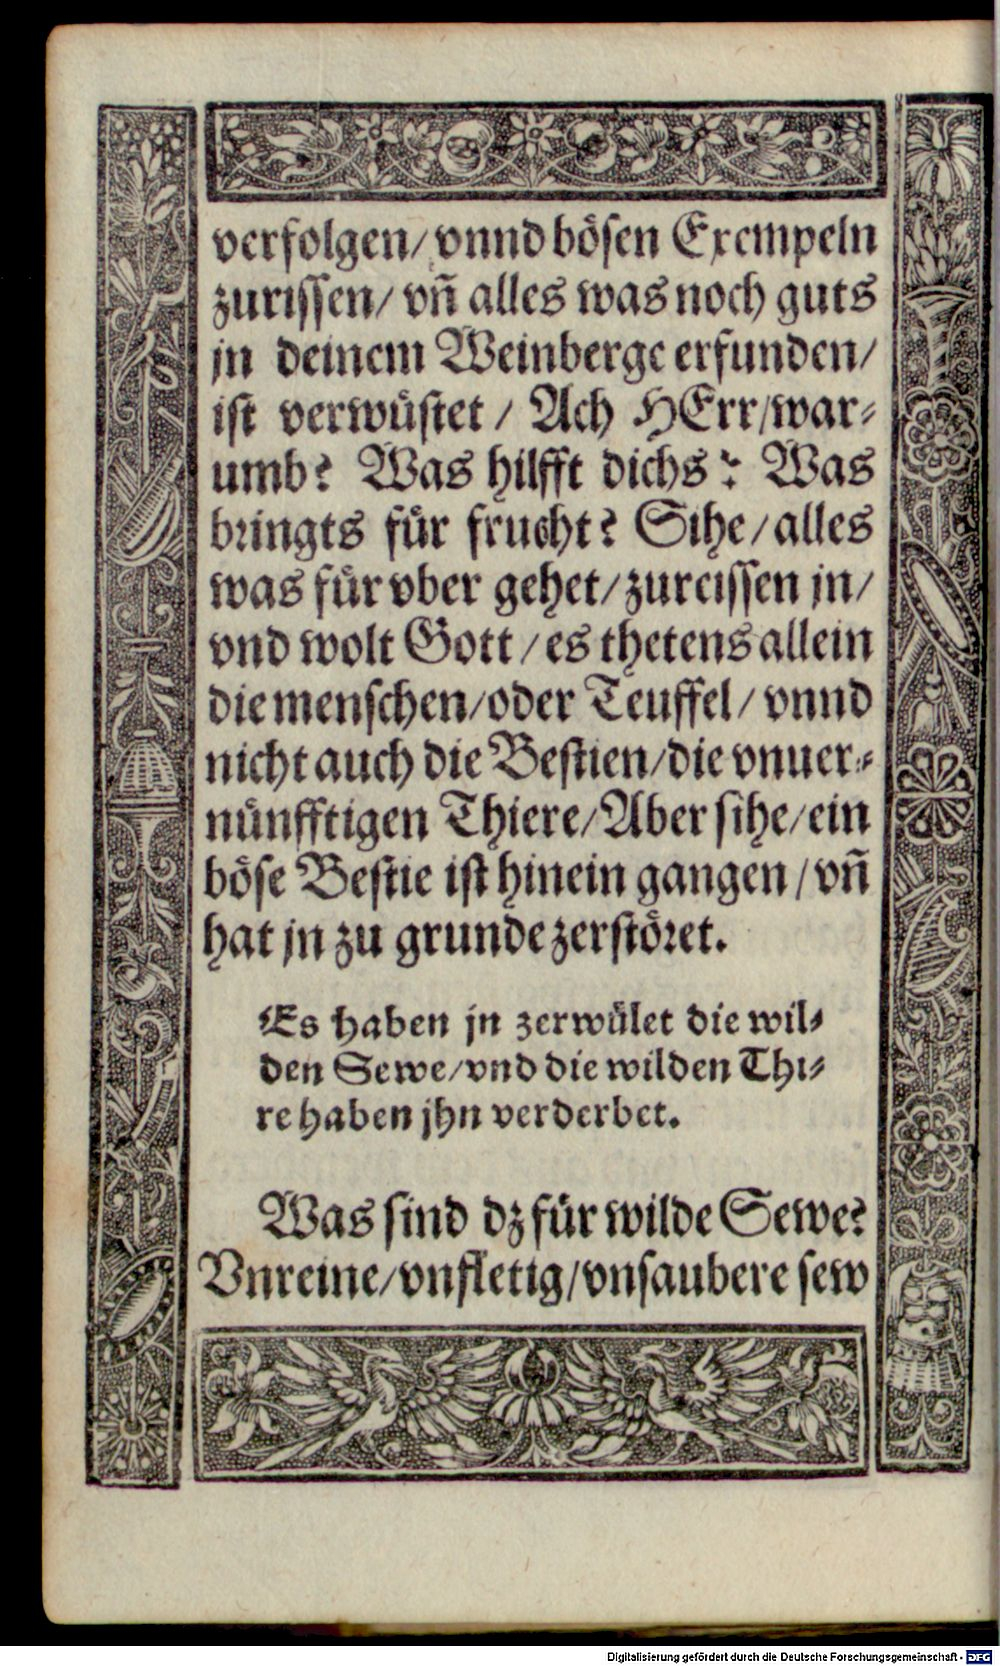 verfolgen/ vnnd bösen Exempeln
zurissen/ vñ alles was noch guts
jn deinem Weinberge erfunden/
ist verwüstet / Ach HErr/war-
umb? Was hilfft dichs? Was
bringts für frucht? Sihe/alles
was für vber gehet/zureissen jn/
vnd wolt Gott/es thetens allein
die menschen/oder Teuffel/ vnnd
nicht auch die Bestien/die vnuer-
nünfftigen Thiere/Aber sihe/ein
böse Bestie ist hinein gangen/vñ
hat jn zu grunde zerstöret.
Es haben jn zerwület die wil-
den Sewe/vnd die wilden Thi-
re haben jhn verderbet.
Was sind dz für wilde Sewe?
Vnreine/vnfletig/vnsaubere sew
Digitalisierung gefördert durch die Deutsche Forschungsgemeinschaft - DFG